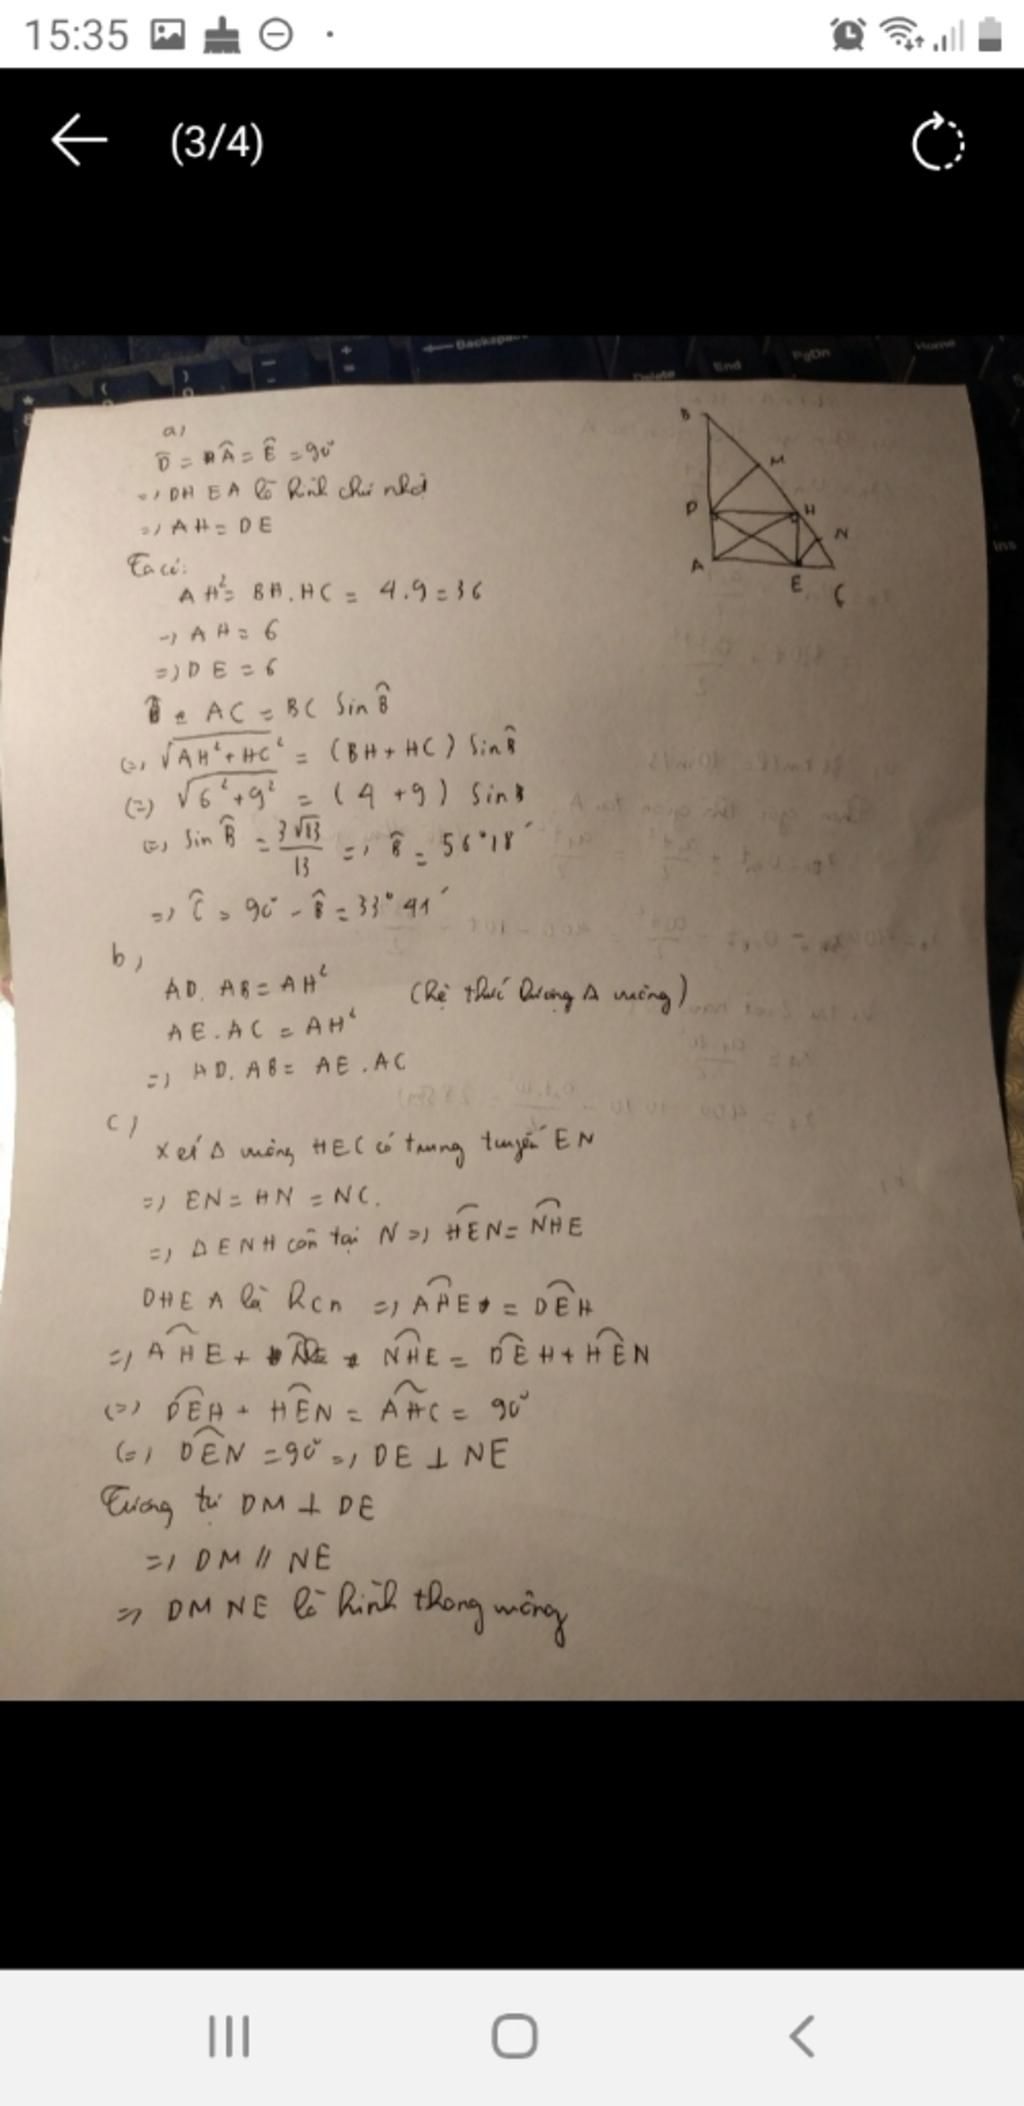 15:35
(3/4)
Backspace
Delete
End
PgDn
Home
Ins
a)
D̂ = Â = Ê = 90°
=) DHEA là hình chữ nhật
=) AH = DE
Ta có:
AH² = BH.HC = 4.9 = 36
=) AH = 6
=) DE = 6
AC = BC Sin B̂
(=) √AH²+HC² = (BH+HC) Sin B̂
(=) √6²+9² = (4+9) Sin B
(=) Sin B̂ = 3√13/13 =) B̂ = 56°18'
=) Ĉ = 90° - B̂ = 33°41'
b)
AD. AB = AH² (hệ thức lượng Δ vuông)
AE.AC = AH²
=) AD. AB = AE.AC
c)
Xét Δ vuông HEC có trung tuyến EN
=) EN = HN = NC.
=) ΔENH cân tại N =) HÊN = NĤE
DHEA là hcn =) AĤE = DÊH
=) AĤE + NĤE = DÊH + HÊN
(=) DÊH + HÊN = AĤC = 90°
(=) DÊN = 90° =) DE ⊥ NE
Tương tự DM ⊥ DE
=) DM // NE
=) DMNE là hình thang vuông
B
M
D
H
N
A
E
C